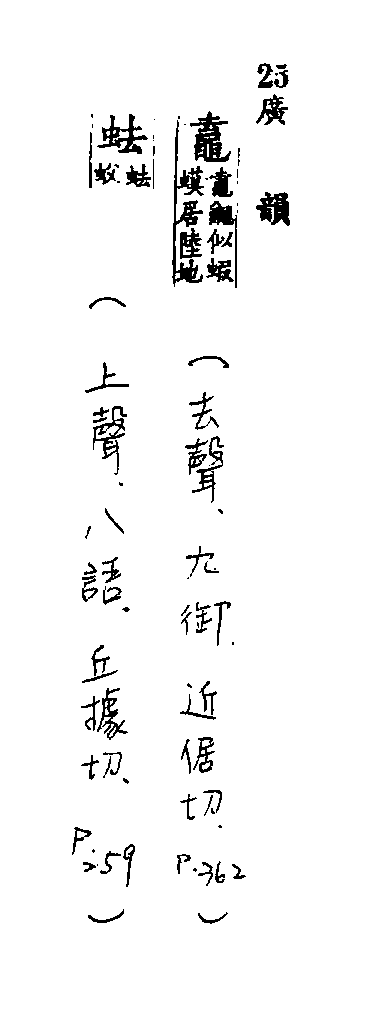 25廣韻
鼁
鼁似蝦
蟆居陸地
（去聲、九御.近倨切.P.362）
𧉧
𧉧
蚥
（上聲、八語、丘據切、P.259）